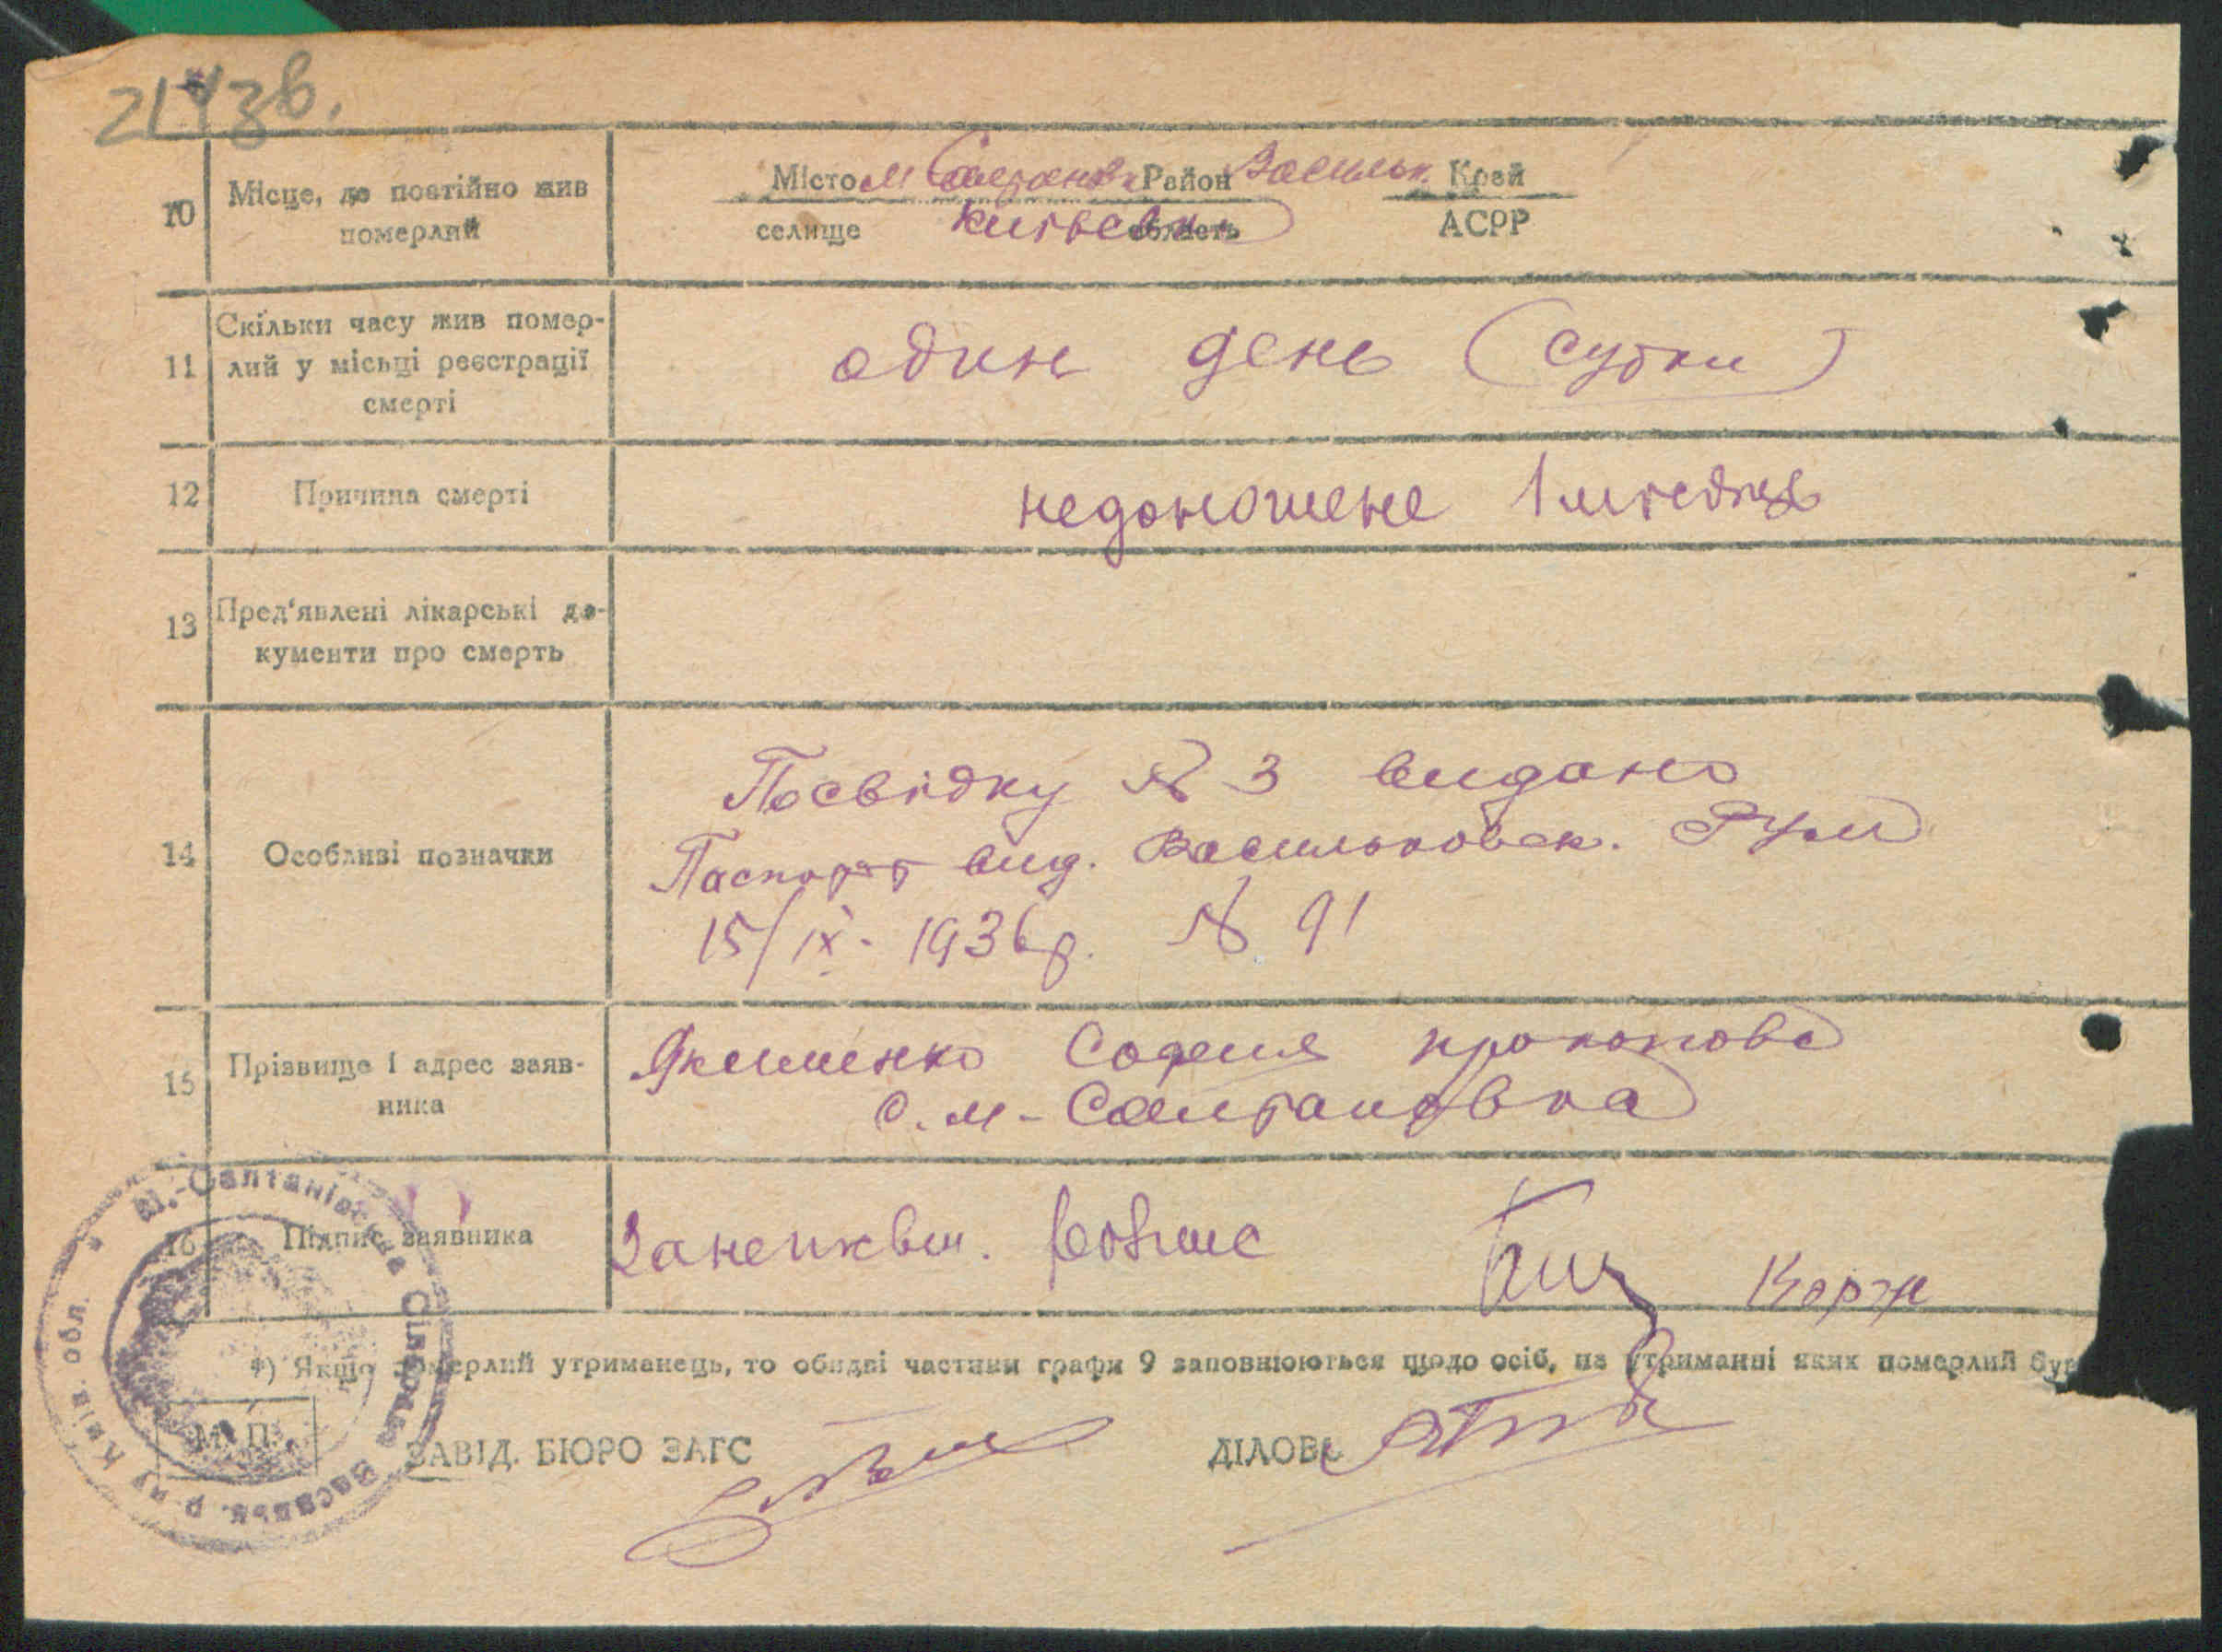 2143в.
10 Місце, де постійно жив померлий
Місто М Салтановк Район Васильк. Край
селище Київськ область АСРР
11 Скільки часу жив помер-
лий у місьці реєстрації
смерті
один день (сутки)
12 Причина смерті
недоношене 1 місяць
13 Пред'явлені лікарські до-
кументи про смерть
14 Особливі позначки
Посвідку № 3 видано
Паспорт вид. Васильковск. РУМ
15/IX - 1936р. № 91
15 Прізвище і адрес заяв-
ника
Якименко София прокопова
с. М-Салтановка
16 Підпис заявника
Корж
*) Якщо померлий утриманець, то обидві частини графи 9 заповнюються щодо осіб, на утриманні яких померлий був
М. П.
ЗАВІД. БЮРО ЗАГС
ДІЛОВ
М.-Салтанівська Сільрада Васильк. р-ну Київ. обл.